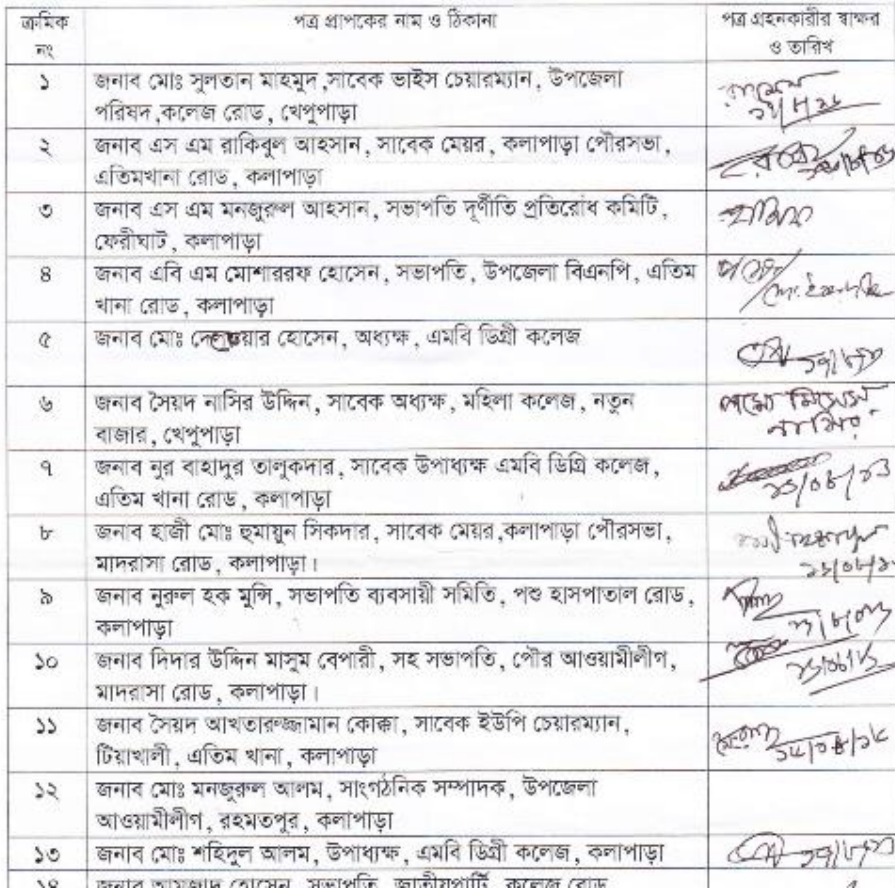 ক্রমিক নং
পত্র প্রাপকের নাম ও ঠিকানা
পত্র গ্রহনকারীর স্বাক্ষর ও তারিখ
১
জনাব মোঃ সুলতান মাহমুদ,সাবেক ভাইস চেয়ারম্যান, উপজেলা
পরিষদ,কলেজ রোড, খেপুপাড়া
২
জনাব এস এম রাকিবুল আহসান, সাবেক মেয়র, কলাপাড়া পৌরসভা,
এতিমখানা রোড, কলাপাড়া
৩
জনাব এস এম মনজুরুল আহসান, সভাপতি দূর্ণীতি প্রতিরোধ কমিটি,
ফেরীঘাট, কলাপাড়া
৪
জনাব এবি এম মোশাররফ হোসেন, সভাপতি, উপজেলা বিএনপি, এতিম
খানা রোড, কলাপাড়া
৫
জনাব মোঃ দেলওয়ার হোসেন, অধ্যক্ষ, এমবি ডিগ্রী কলেজ
৬
জনাব সৈয়দ নাসির উদ্দিন, সাবেক অধ্যক্ষ, মহিলা কলেজ, নতুন
বাজার, খেপুপাড়া
৭
জনাব নুর বাহাদুর তালুকদার, সাবেক উপাধ্যক্ষ এমবি ডিগ্রি কলেজ,
এতিম খানা রোড, কলাপাড়া
৮
জনাব হাজী মোঃ হুমায়ুন সিকদার, সাবেক মেয়র,কলাপাড়া পৌরসভা,
মাদরাসা রোড, কলাপাড়া।
৯
জনাব নুরুল হক মুন্সি, সভাপতি ব্যবসায়ী সমিতি, পশু হাসপাতাল রোড,
কলাপাড়া
১০
জনাব দিদার উদ্দিন মাসুম বেপারী, সহ সভাপতি, পৌর আওয়ামীলীগ,
মাদরাসা রোড, কলাপাড়া।
১১
জনাব সৈয়দ আখতারুজ্জামান কোক্কা, সাবেক ইউপি চেয়ারম্যান,
টিয়াখালী, এতিম খানা, কলাপাড়া
১২
জনাব মোঃ মনজুরুল আলম, সাংগঠনিক সম্পাদক, উপজেলা
আওয়ামীলীগ, রহমতপুর, কলাপাড়া
১৩
জনাব মোঃ শহিদুল আলম, উপাধ্যক্ষ, এমবি ডিগ্রী কলেজ, কলাপাড়া
১৪
জনাব আমজাদ হোসেন, সভাপতি, জাতীয়পার্টি, কলেজ রোড